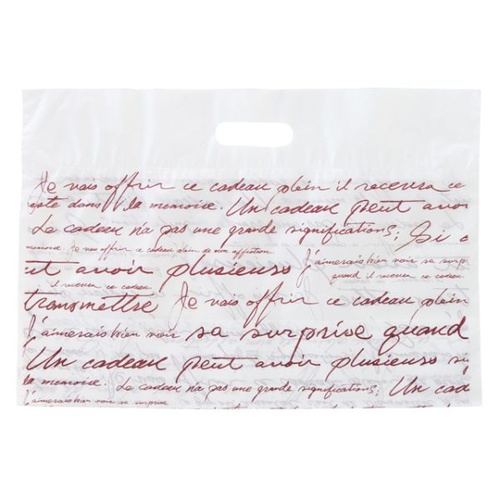 Je vais offrir ce cadeau plein il recevra ce
reste dans la memoire. Un cadeau peut avoir
La cadeau n'a pas une grande significations; Si c
memoire. Je vais offrir ce cadeau plein d'un affection
J'aimerais bien voir se surpr
ut avoir plusieuss quand il recevra ce cadeau
il recevra ce cadeau
transmettre Je vais offrir ce cadeau plein
J'aimerais bien voir sa surprise quand
Un cadeau peut avoir plusieuss si
la memoire. La cadeau n'a pas une grande significations; Un cad
J'aimerais bien voir se surprise